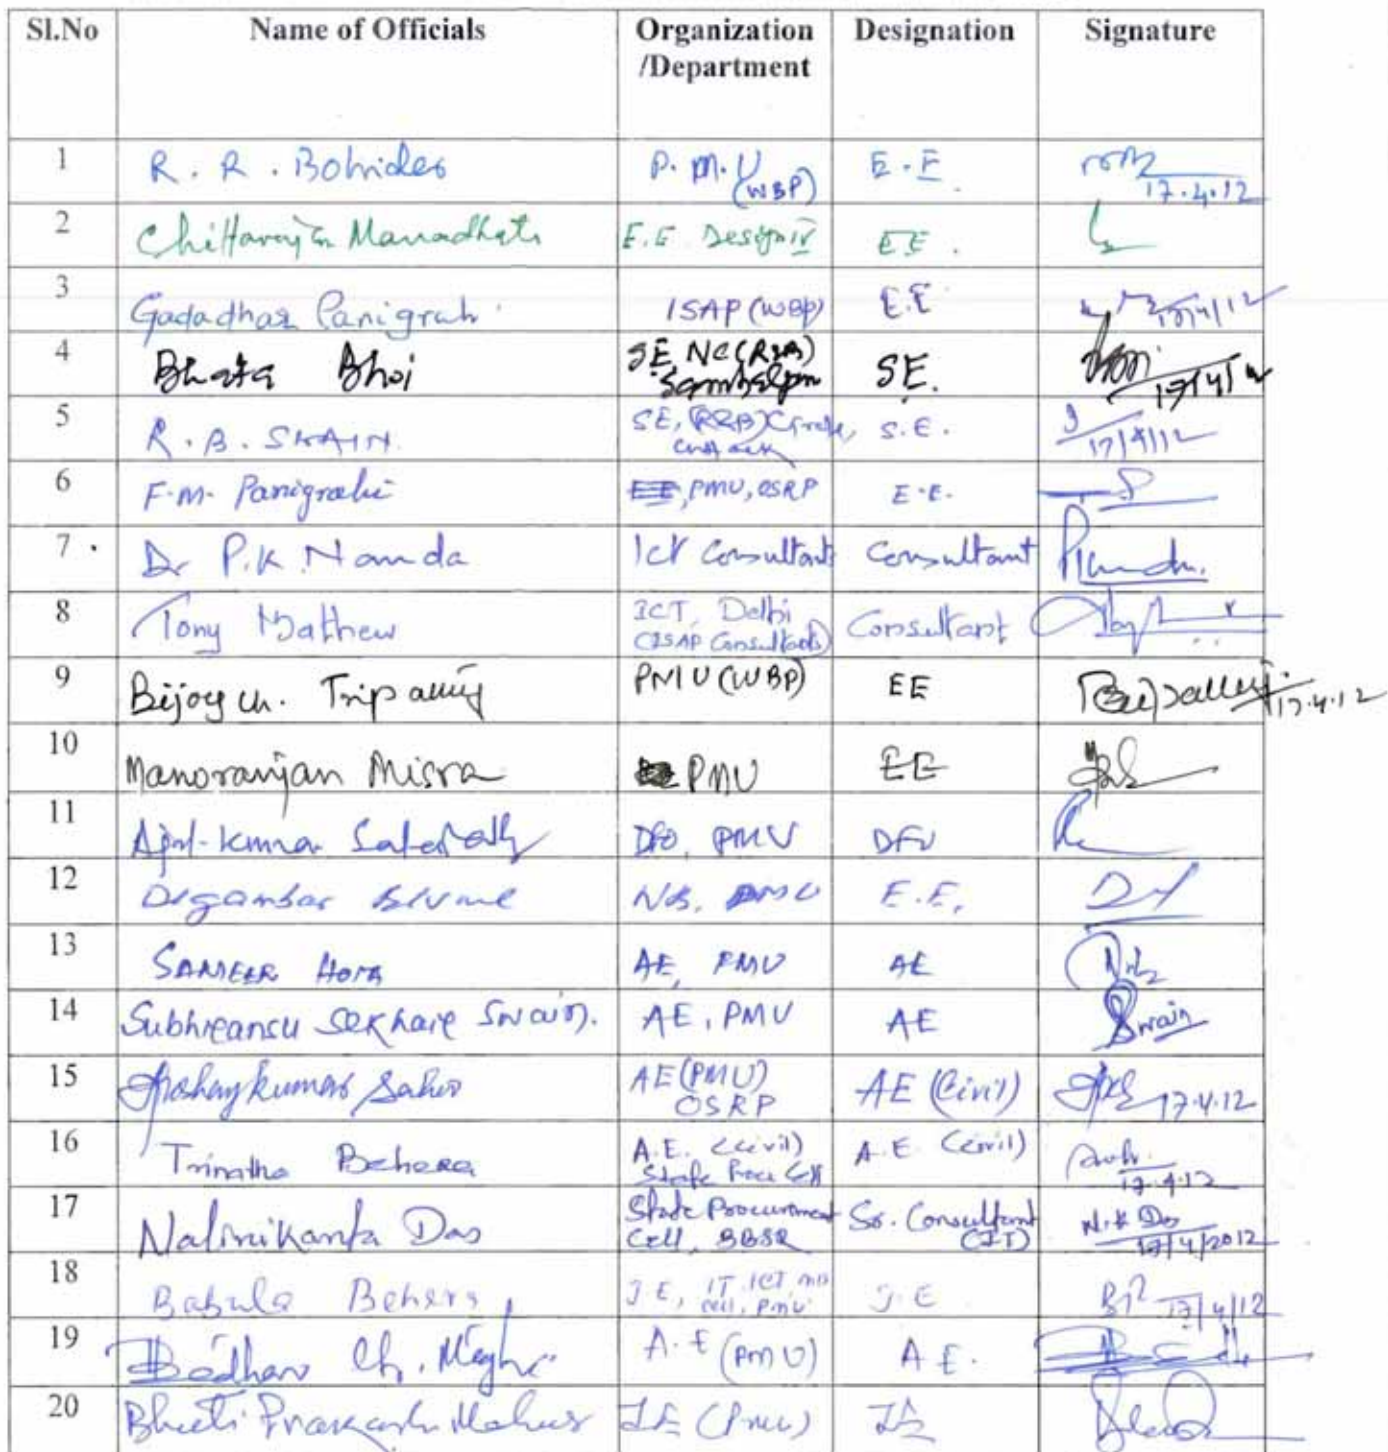 Sl.No Name of Officials Organization /Department Designation Signature
1 R. R. Bohidar P.M.U (WBP) E.E 17.4.12
2 Chittaranjan Manadhata E.E Design IV EE.
3 Gadadhar Panigrahi ISAP (WBP) E.E 17/4/12
4 Bhata Bhoi SE NC (R&B) Sambalpur SE. 17/4/12
5 R.B. SWAIN. SE, (R&B) Circle, Cuttack S.E. 17/4/12
6 F.M. Panigrahi EE, PMU, OSRP E.E.
7. Dr P.K. Nanda ICT Consultants Consultant
8 Tony Mathew ICT, Delhi (ISAP Consultants) Consultant
9 Bijoy Ch. Tripathy PMU (WBP) EE 17.4.12
10 Manoranjan Misra PMU EE
11 Ajit Kumar Satapathy DFO, PMU DFO
12 Digambar PMU E.E.
13 SAMEER HOTA AE, PMU AE
14 Subhransu Sekhar Swain. AE, PMU AE Swain
15 Akshay kumar Sahoo AE (PMU) OSRP AE (Civil) 17.4.12
16 Trinatha Behera A.E. (Civil) State Proc Cell A.E. (Civil) 17.4.12
17 Nalinikanta Das State Procurement Cell, BBSR Sr. Consultant (IT) N.K Das 17/4/2012
18 Babula Behera J.E, IT, ICT, cell, PMU J.E 17/4/12
19 Ch. A.E (PMU) A.E.
20 Prakash JE (PMU) JE